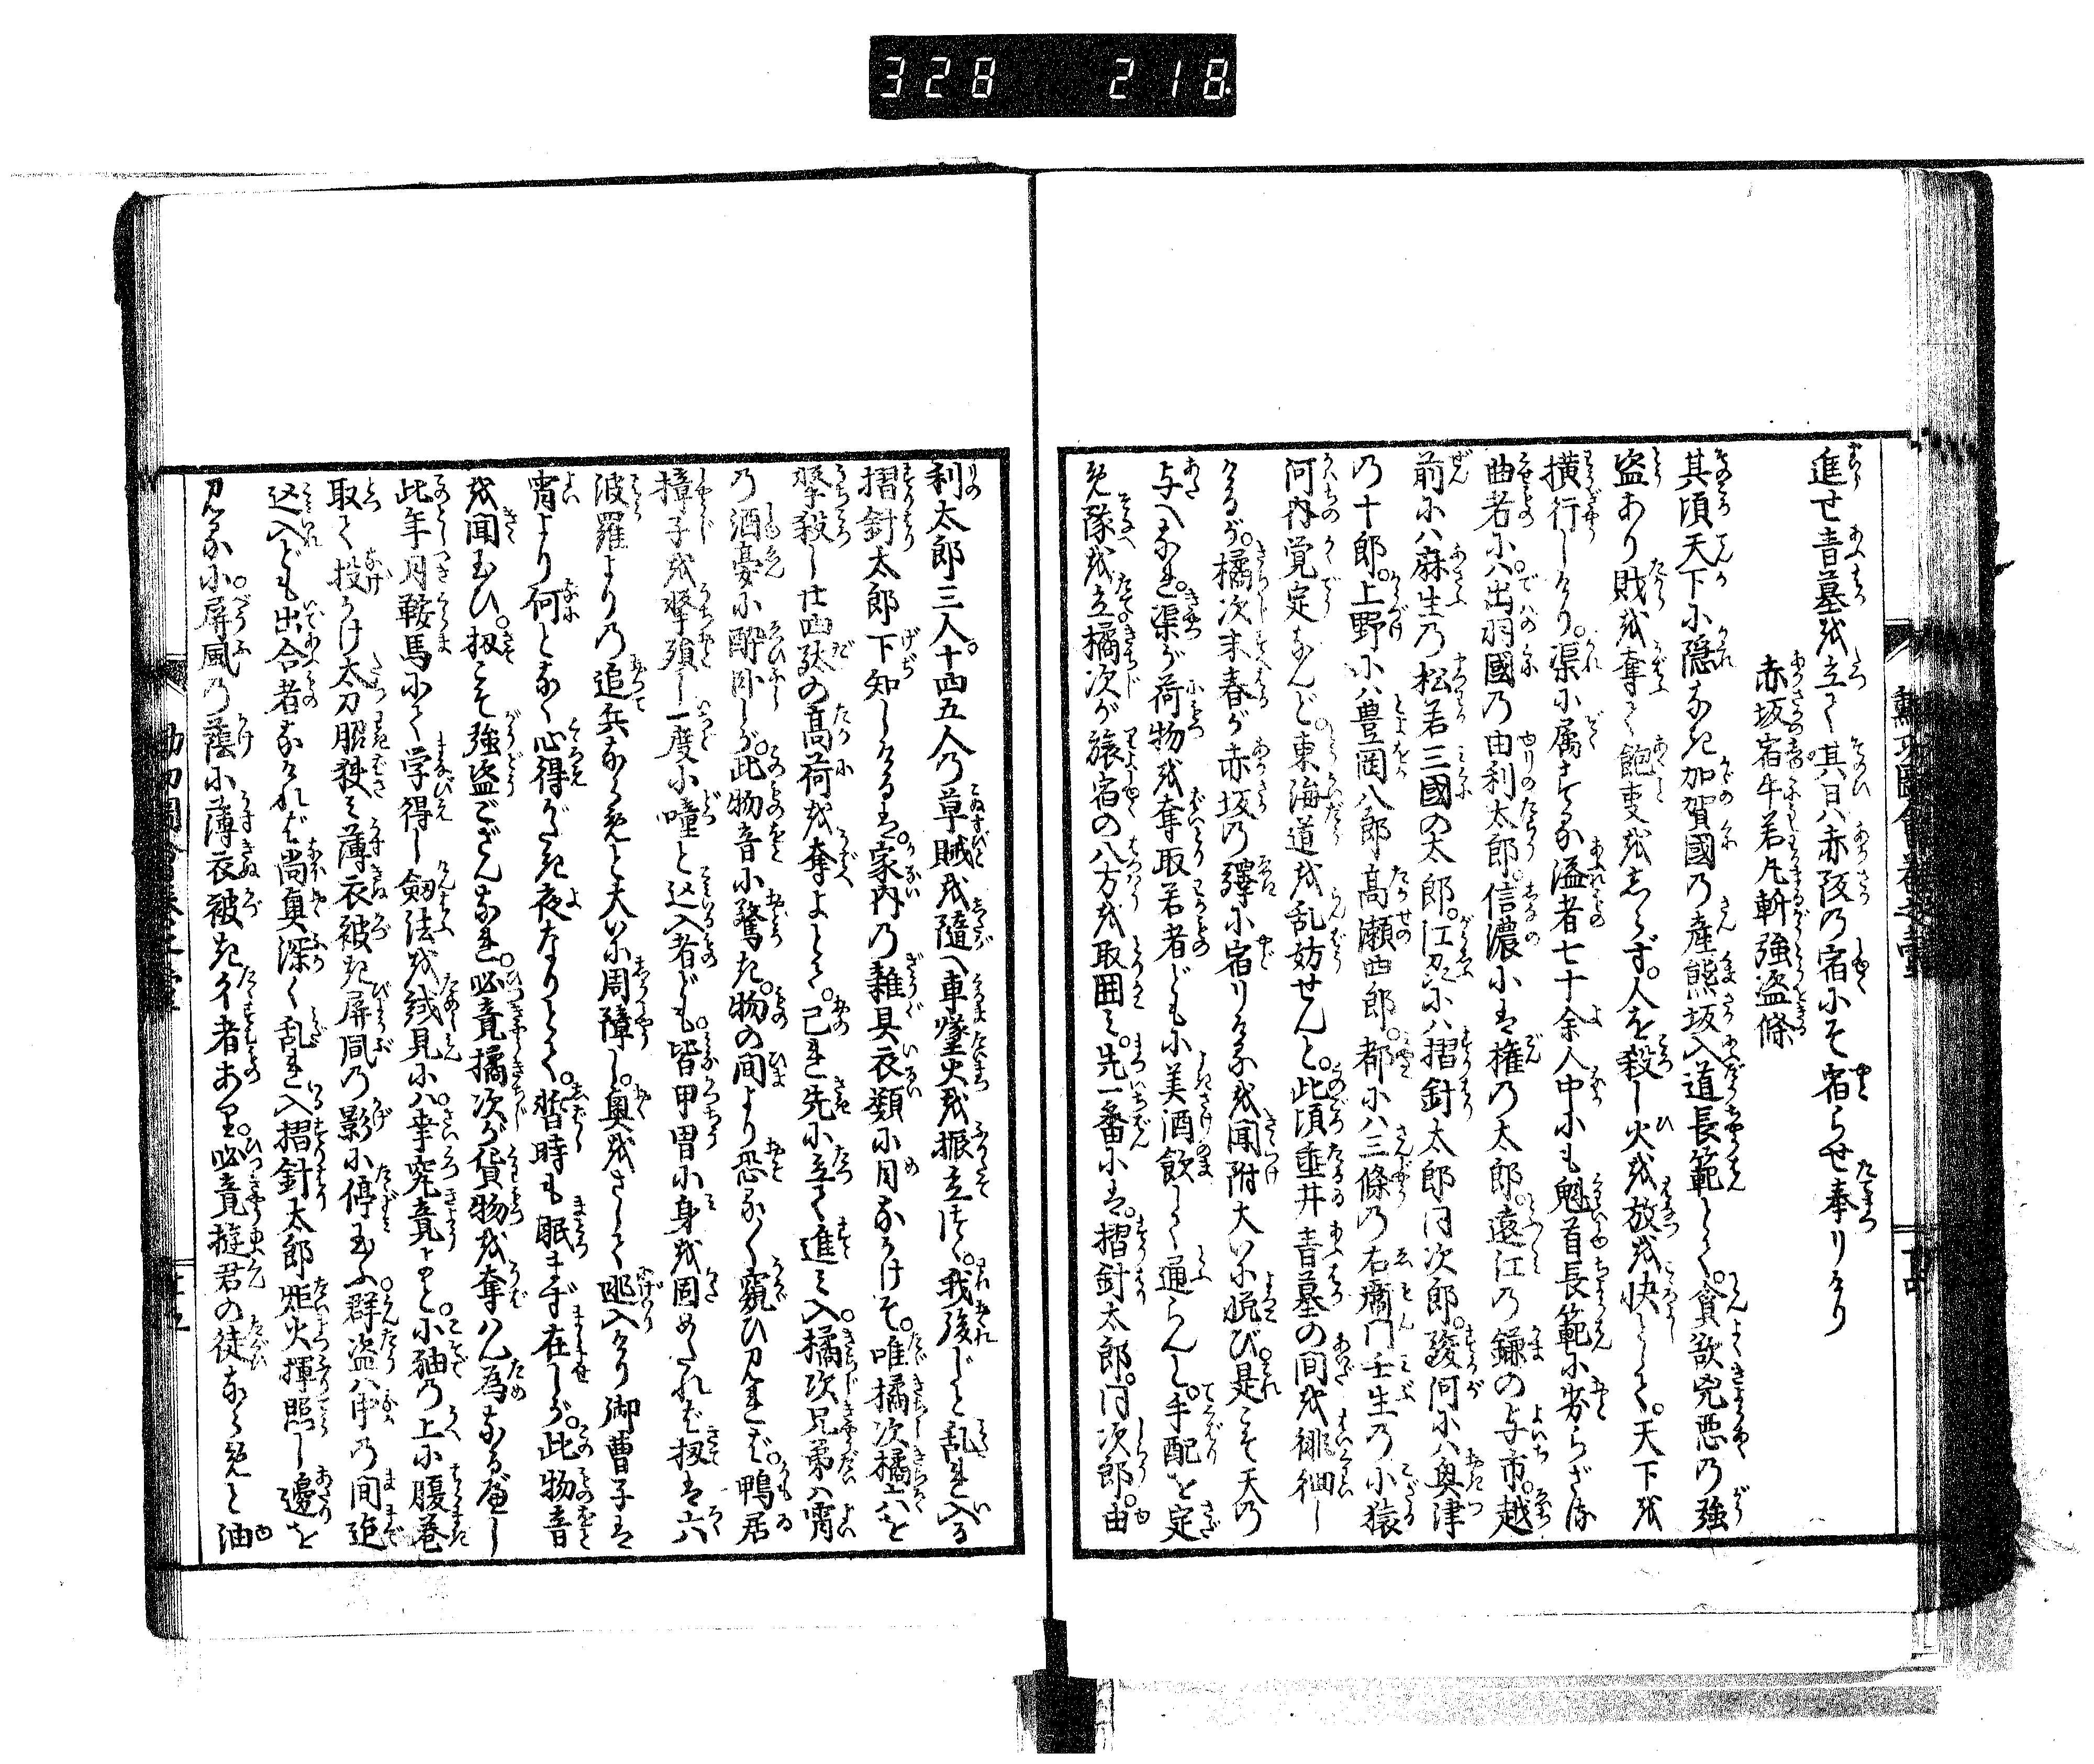 328 218
進せ青墓を立て其日ハ赤阪の宿にそ宿らせ奉りけり
赤坂宿牛若丸斬強盗條
其頃天下に隠なき加賀國の産熊坂入道長範とて。貪欲兇悪の強
盗あり財を奪て飽事をしらず。人を殺し火を放を快とし。天下を
横行しけり。渠に属する溢者七十余人中にも魁首長範に劣らざる
曲者にハ出羽國の由利太郎。信濃にハ権の太郎。遠江の鎌の与市。越
前にハ麻生の松若三國の太郎。江州にハ摺針太郎同次郎。駿河にハ奥津
の十郎。上野にハ豊岡八郎高瀬四郎。都にハ三條の右衛門壬生の小猿
河内覚定なんど。東海道を乱妨せんと。此頃垂井青墓の間を徘徊し
けるが。橘次末春が赤坂の驛に宿りけるを聞附大いに悦び。是こそ天の
与へなれ。渠が荷物を奪取若者どもに美酒飲して通らんと。手配を定
先隊を立橘次が旅宿の八方を取囲ミ。先一番にハ。摺針太郎。同次郎。由
利太郎三人。十四五人の草賊を随へ車爆火を振立つゝ。我後じと乱れ入る
摺針太郎下知しけるハ。家内の雑具衣類に目なかけそ。唯橘次橘六を
撃殺し廿四駄の高荷を奪よとて。己れ先に立て進ミ入。橘次兄弟ハ宵
の酒宴に酔臥しが。此物音に驚き。物の間より恐るく窺ひ見れバ。鴨居
障子を撃殞し一度に噇と込入者ども。皆甲冑に身を固めたれバ扨ハ六
波羅よりの追兵ならんと大いに周障し。奥をさして迯入けり御曹子ハ
宵より何となく心得がたき夜なりとて。暫時も眠まず在しが。此物音
を聞玉ひ。扨こそ強盗ござんなれ。必竟橘次が貨物を奪ハん為なるべし
此年月鞍馬にて学得し劔法を試見にハ。幸究竟なりと。小袖の上に腹巻
取て投かけ太刀脇挟ミ薄衣被き屏風の影に停玉ふ群盗ハ中の間迄
込入ども出合者なけれバ尚奥深く乱れ入摺針太郎炬火揮照し邊を
見るに。屏風の蔭に薄衣被き彳者あり。必竟遊君の徒ならんと油